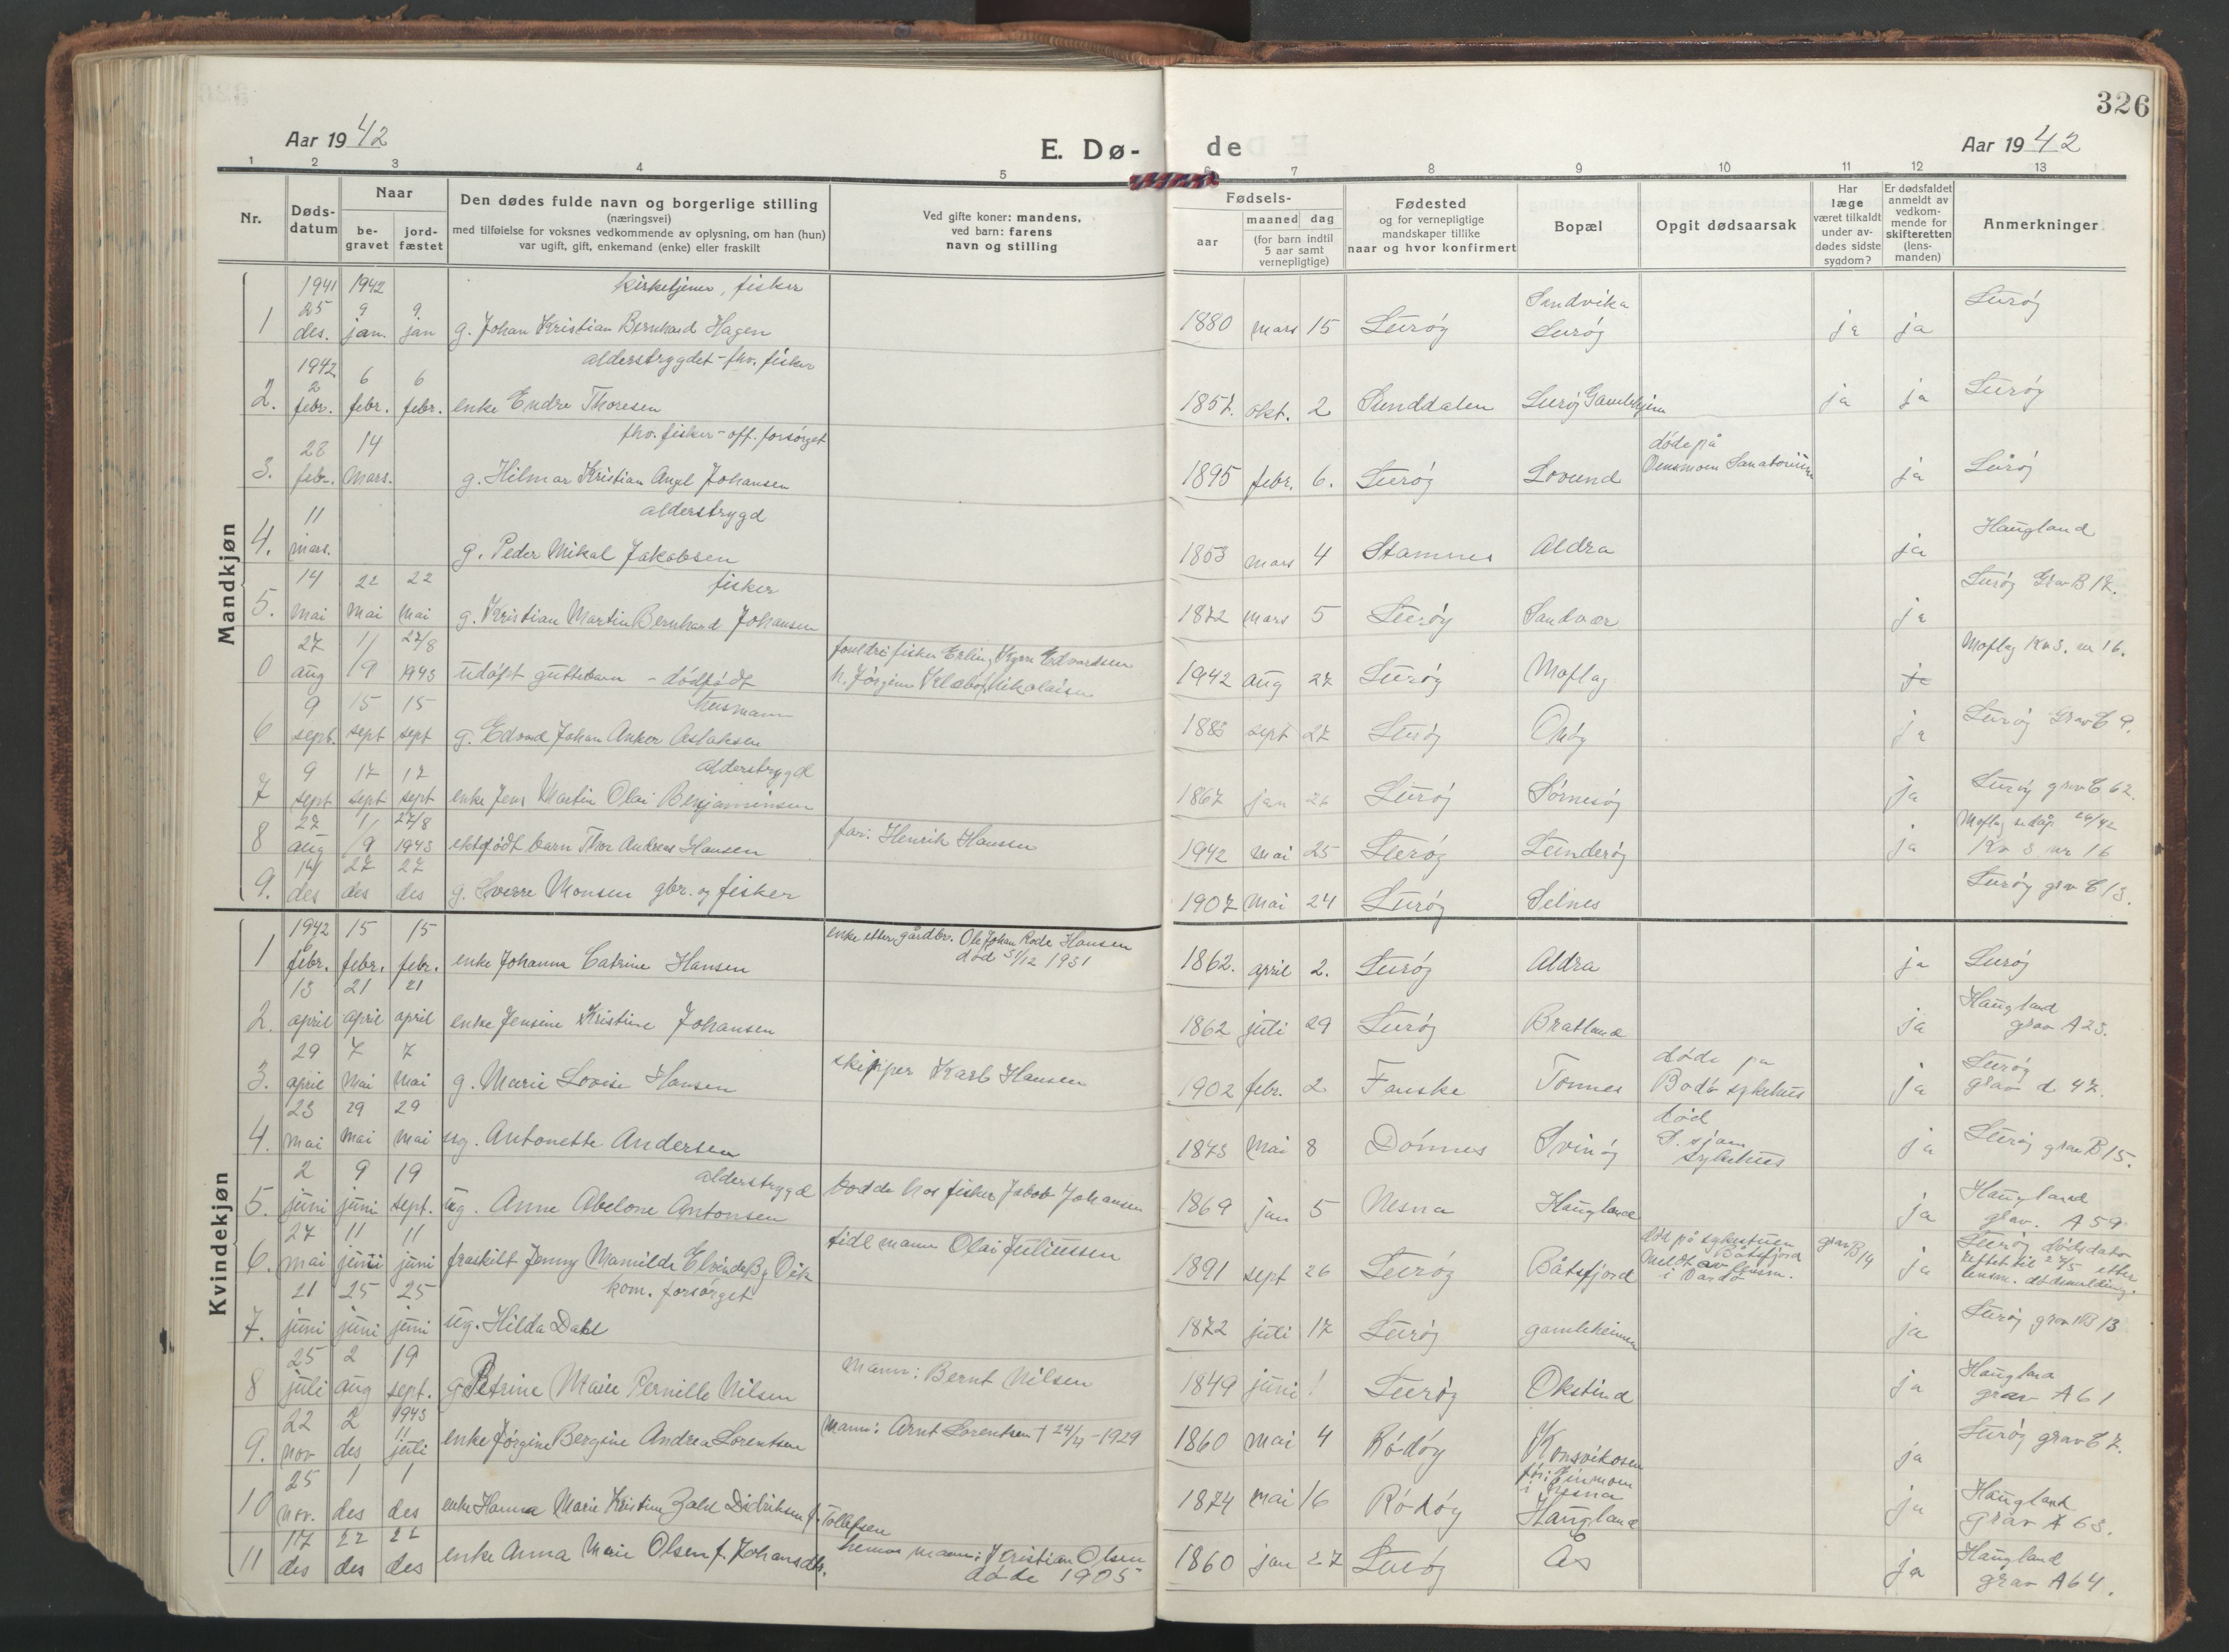 326
Aar 1942
E. Dø-
de
Aar 1942
1 2 3 4 5 6 7 8 9 10 11 12 13
Nr.
Døds-
datum
Naar
be-
gravet
jord-
fæstet
Den dødes fulde navn og borgerlige stilling
(næringsvei)
med tilføielse for voksnes vedkommende av oplysning, om han (hun)
var ugift, gift, enkemand (enke) eller fraskilt
Ved gifte koner: mandens,
ved barn: farens
navn og stilling
Fødsels-
aar
maaned dag
(for barn indtil
5 aar samt
vernepligtige)
Fødested
og for vernepligtige
mandskaper tillike
naar og hvor konfirmert
Bopæl
Opgit dødsaarsak
Har
læge
været tilkaldt
under av-
dødes sidste
sygdom?
Er dødsfaldet
anmeldt av
vedkom-
mende for
skifteretten
(lens-
manden)
Anmerkninger
Mandkjøn
1941 1942 kirketjener, fisker
1 25 des. 9 jan. 9 jan g. Johan Kristian Bernhard Hagen 1880 mars 15 Lurøy Sandvika Lurøy ja ja Lurøy
1942 alderstrygdet - fhv. fisker
2. 2 febr. 6 febr. 6 febr. enke Endre Thoresen 1857. okt. 2 Sunddalen Lurøy Gamlehjem ja ja Lurøy
fhv. fisker - off. forsørget
3. 28 febr. 14 Mars. g. Hilmar Kristian Angel Johansen 1895 febr. 6. Lurøy Lovund døde på Sanatorium ja Lurøy
alderstrygd
4. 11 mars. g. Peder Mikal Jakobsen 1853 mars 4 Stamnes Aldra ja Haugland
fisker
5. 14 mai 22 mai 22 mai g. Kristian Martin Bernhard Johansen 1872 mars 5 Lurøy Sandvær ja Lurøy Grav B 17.
0 27 aug 1/9 27/8 1943 udøpt guttebarn - dødfødt foreldre fisker Erling Kyrre Edvardsen h. Jørgine Nikolaisen 1942 aug 27 Lurøy Moflag ja Moflag Kv 3. nr 16.
husmann
6 9 sept. 15 sept 15 sept g. Edvard Johan Anker Aslaksen 1883 sept 27 Lurøy Onøy ja Lurøy Grav C 9.
alderstrygd
7 9 sept 17 sept 17 sept enke Jens Martin Olai Benjaminsen 1867 jan Lurøy Sørnesøy ja Lurøy grav C 62.
8 27 aug 1/9 27/8 1943 ektefødt barn Thor Andreas Hansen far: Henrik Hansen 1942 mai 25 Lurøy Lunderøy ja Moflag Kv 3 nr 16
9. 14 des 27 des 27 des g. Sverre Monsen gbr. og fisker 1907 mai 24 Lurøy Selnes Lurøy grav C 13.
Kvindekjøn
1942
1 6 febr. 15 febr. 15 febr. enke Johanna Catrine Hansen enke etter gårdbr. Ole Johan Rode Hansen død 31/12 1931 1862. april 2. Lurøy Aldra ja Lurøy
2. 13 april 21 april 21 april enke Jensine Kristine Johansen 1862 juli 29 Lurøy Bratland ja Haugland grav A 23.
3. 29 april 7 mai 7 mai g. Marie Lovise Hansen skipper Karl Hansen 1902 febr. 2 Fauske Tonnes døde på Bodø sykehus ja Lurøy grav d 47.
4. 23 mai 29 mai 29 mai ug. Antonette Andersen 1873 mai 8 Dønnes Svinøy død S.sjøen sykehus ja Lurøy grav B 15.
alderstrygd
5. 2 juni 9 juni 19 sept. ug. Anne Abelone Antonsen bodde hos fisker Jakob Johansen 1869 jan 5 Nesna Haugland ja Haugland grav. A 59.
6. 27 mai 11 juni 11 juni fraskilt Jenny Mamilde tidl mann Olai Juliussen 1891 sept 26 Lurøy Båtsfjord død på sykestuen Båtsfjord meldt av lensm. i Vardø grav B 14 ja Lurøy dødsdato rettet til 27/5 etter lensm. dødsmelding.
kom. forsørget
7. 21 juni 25 juni 25 juni ug. Hilda Dahl 1872 juli 17 Lurøy gamleheimen ja Lurøy grav B 13
8 25 juli 2 aug 19 sept. g. Petrine Marie Pernille Nilsen Mann: Bernt Nilsen 1849 juni 1 Lurøy Okstind ja Haugland grav A 61
9. 22 nov 2 des 1943 11 juli enke Jørgine Bergine Andrea Lorentsen Mann: Arnt Lorentsen † 24/4 - 1929 1860 mai 4 Rødøy Konsvikosen ja Lurøy grav C 7.
10 25 nov. 1 des 1 des enke Hanna Marie Kristine Zahl Didriksen f. Tollefsen 1874 mai 16 Rødøy før: i Nesna Haugland ja Haugland grav A 63.
11 17 des 22 des 22 des enke Anna Marie Olsen f. Johansdtr. hennes mann: Kristian Olsen døde 1905 1860 jan 27 Lurøy Ås ja Haugland grav A 64.